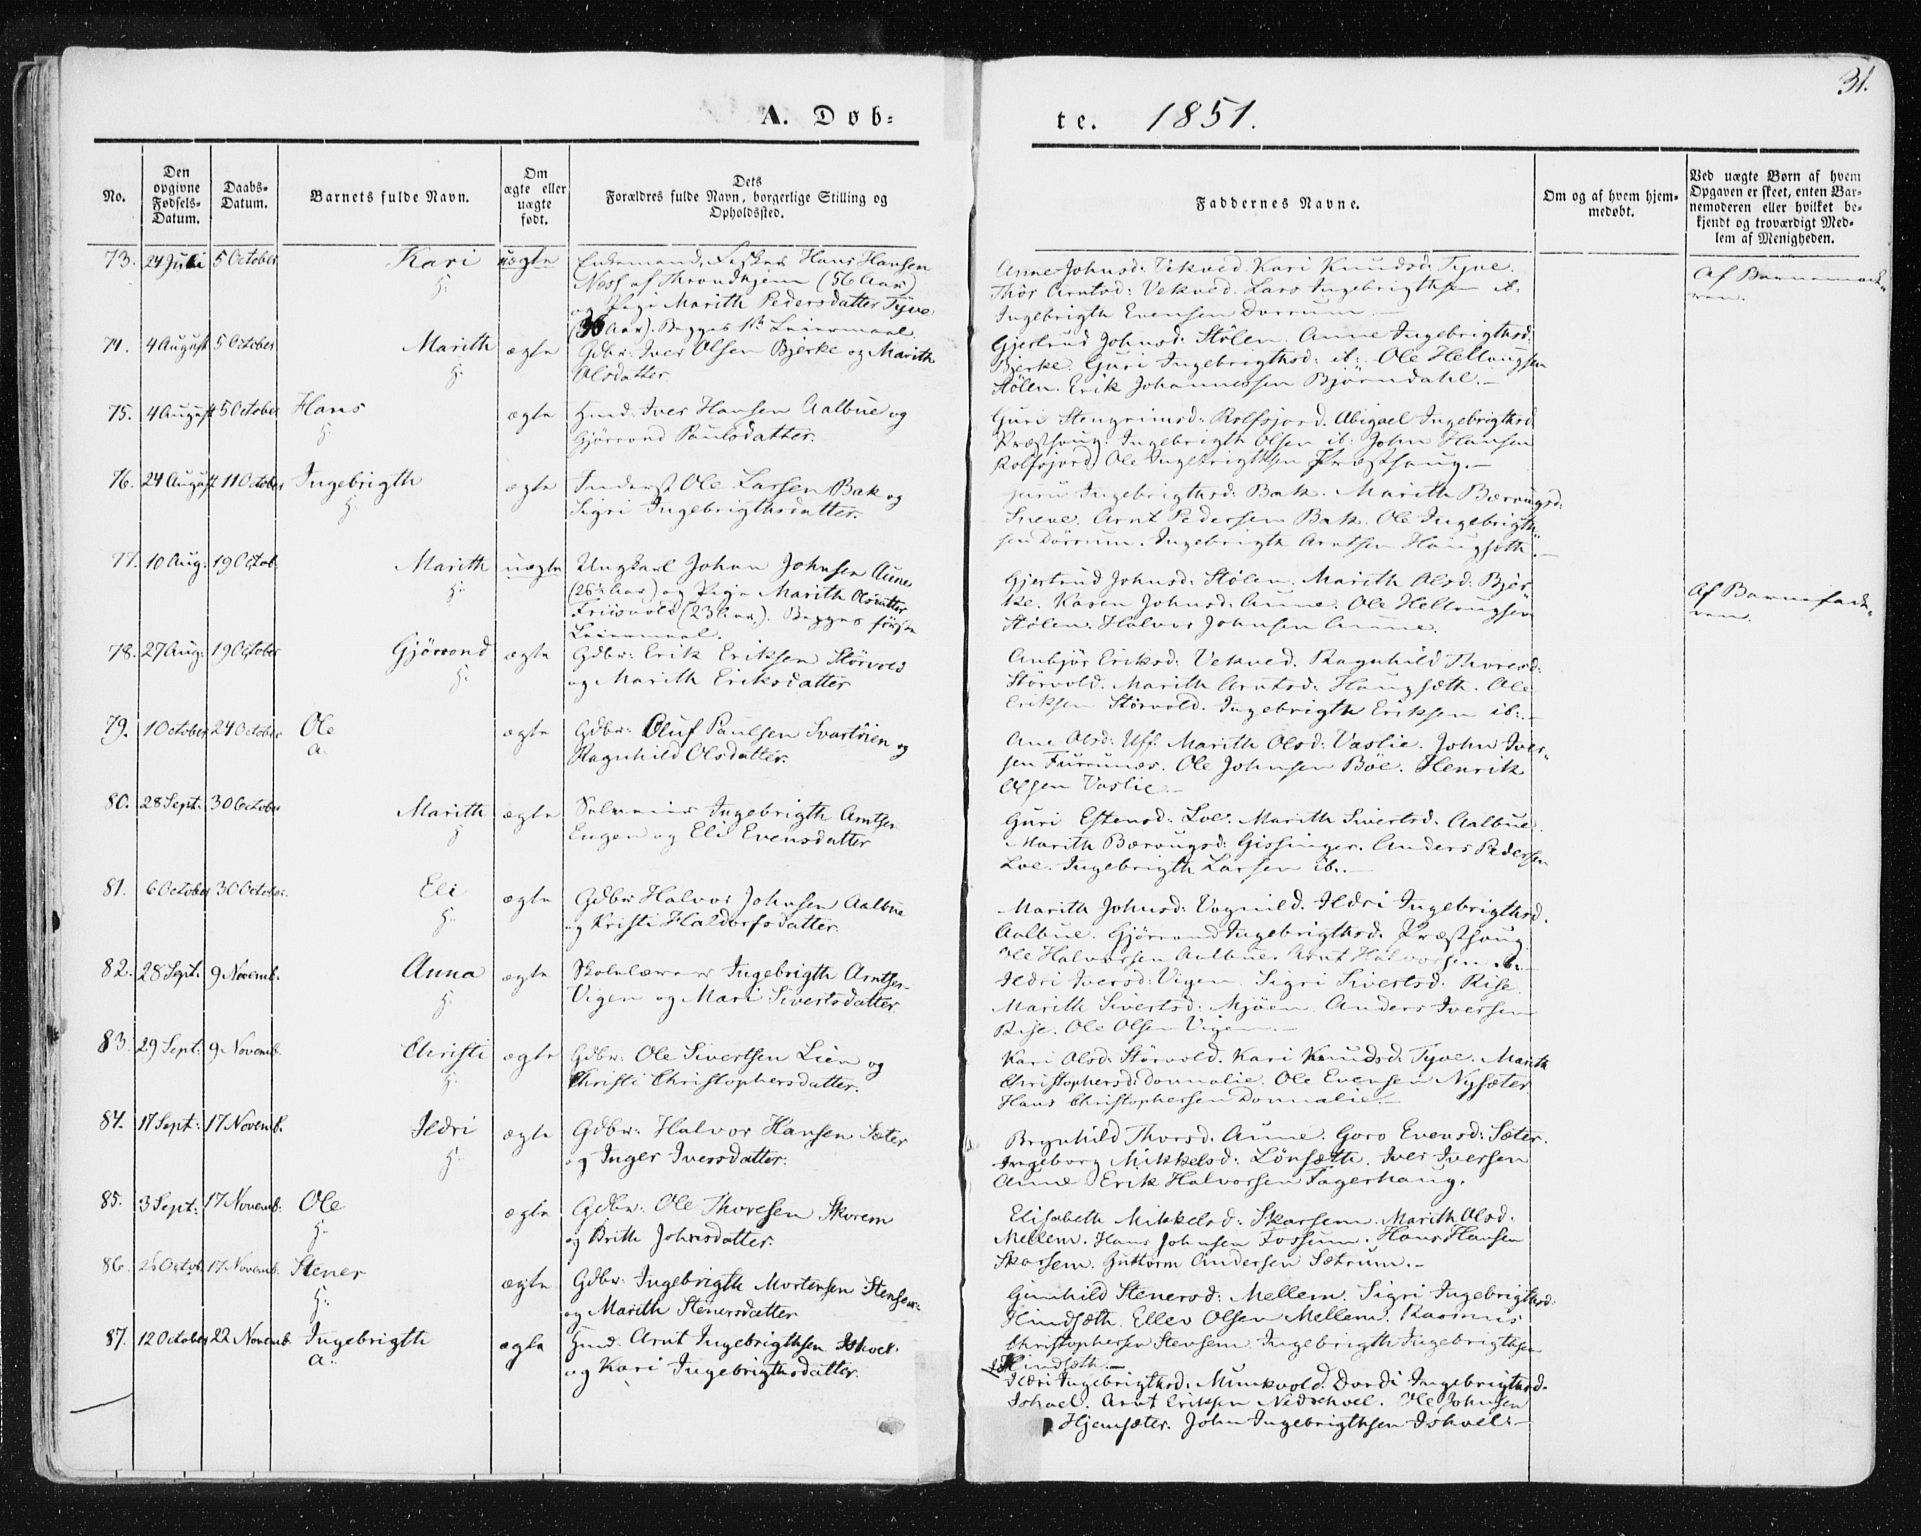 31.
A. Døb-
te. 1851.
No.
Den opgivne Fødsels-Datum.
Daabs-Datum.
Barnets fulde Navn.
Om ægte eller uægte født.
Dets Forældres fulde Navn, borgerlige Stilling og Opholdssted.
Faddernes Navne.
Om og af hvem hjem-medøbt.
Ved uægte Børn af hvem Opgaven er skeet, enten Bar-nemoderen eller hvilket be-kjendt og troværdigt Med-lem af Menigheden.
73. 24 Juli 5 October Kari uægte Enkemand, Fisker Hans Hansen
H:
Ness af Throndhjem (56 Aar)
og Pige Marith Pedersdatter Tyve
(36 Aar). Begges 1ste Leiermaal.
Anne Johnsd: Vekved. Kari Knudsd: Tyve.
Thor Arntsd: Vekved. Lars Ingebrigthsen ib.
Ingebrigth Evensen Dorrum.
Af Barnemod-
ren.
74. 4 August 5 October Marith ægte Gdbr: Iver Olsen Bjerke og Marith
H:
Olsdatter.
Gjertrud Johnsd: Stölen. Anne Ingebrigthsd:
Bjerke. Guri Ingebrigthsd: ib: Ole Hellaugsen
Stölen. Erik Johannessen Björndahl.
75. 4 August 5 October Hans ægte Hmd. Iver Hansen Aalbue og
H:
Gjörrond Paulsdatter.
Guri Stengrimsd: Rolfsjord. Abigael Ingebrigthsd:
Præsthaug. Ingebrigth Olsen ib: John Hansen
Rolfsjord. Ole Ingebrigthsen Præsthaug.
76. 24 August 11 October Ingebrigth ægte Inderst Ole Larsen Bak og
H:
Sigri Ingebrigthsdatter.
Guru Ingebrigthsd: Bak. Marith Bærougsd:
Sneve. Arnt Pedersen Bak. Ole Ingebrigth-
sen Dörrum. Ingebrigth Arntsen Haugseth.
77. 10 Aug: 19 Octob. Marith uægte Ungkarl Johan Johnsen Aune
H:
(26½ Aar) og Pige Marith Olsdatter
Friisvold (23 Aar). Begges förste
Leiermaal.
Gjertrud Johnsd: Stölen. Marith Olsd: Bjer-
ke. Karen Johnsd: Aune. Ole Hellaugsen
Stölen. Halvor Johnsen Aune.
Af Barnefad-
ren.
78. 27 Aug: 19 October Gjörrond ægte Gdbr: Erik Eriksen Störvold
H:
og Marith Eriksdatter
Anbjör Eriksd: Vekved. Ragnhild Thoresd:
Störvold. Marith Arntsd: Haugseth. Ole
Eriksen Störvold. Ingebrigth Eriksen ib:
79. 1 October 24 October Ole ægte Gdbr: Oluf Paulsen Svartöien og
A:
Ragnhild Olsdatter.
Ane Olsd: Uff. Marith Olsd: Vaslie. John Iver-
sen Furrunes. Ole Johnsen Böe. Henrik
Olsen Vaslie.
80. 28 Sept: 30 October Marith ægte Ingebrigth Arntsen
H
Engen og Eli Evensdatter
Guri Estensd: Loe. Marith Sivertsd. Aalbue.
Marith Bærougsd: Gissinger. Anders Pedersen
Loe. Ingebrigth Larsen ib.
81. 6 October 30 October. Eli ægte Gdbr Halvor Johnsen Aalbue
H:
og Kristi Haldorsdatter.
Marith Johnsd: Vognild. Ildri Ingebrigthsd.
Aalbue. Gjörrond Ingebrigthsd. Præsthaug.
Ole Halvorsen Aalbue. Arnt Halvorsen ib.
82. 28 Sept: 9 Novemb. Anna ægte Skolelærer Ingebrigth Arntsen
H:
Vigen og Mari Sivertsdatter.
Ildri Iversd: Vigen. Sigri Sivertsd. Rise.
Marith Sivertsd: Mjöen. Anders Iversen
Rise. Ole Olsen Vigen.
83. 29 Sept: 9 Novemb. Christi ægte Gdbr: Ole Sivertsen Lien og
H:
Christi Christophersdatter.
Kari Olsd: Störvold. Kari Knudsd. Tyve. Marith
Christophersd: Donnalie. Ole Evensen Nysæter
Hans Christophersen Donnalie.
84. 17 Sept: 17 Novemb. Ildri ægte Gdbr: Halvor Hansen Sæter
H:
og Inger Iversdatter.
Brynhild Thorsd. Aune. Goro Evensd: Sæter.
Ingeborg Mikkelsd: Lönsæth. Iver Iversen
Aune Erik Halvorsen Fagerhaug.
85. 3 Sept: 17 Novemb: Ole ægte Gdbr: Ole Thoresen Skorem
H:
og Brith Johnsdatter.
Elisabeth Mikkelsd: Skarsem. Marith Olsd:
Mellem. Hans Johnsen Fossum. Hans Hansen
Skorsem. Guttorm Andersen Sætrum.
86. 26 Octob. 17 Novemb. Stener ægte Gdbr: Ingebrigth Mortensen Stensem
H:
og Marith Stenersdatter
Gunhild Stenersd: Mellem. Sigri Ingebrigthsd:
Hindsæth. Ellev Olsen Mellem. Rasmus
Christophersen Stensem. Ingebrigth Ingebrigthsen
Hindsæth.
87. 12 October 22 Novemb. Ingebrigth ægte Hmd. Arnt Ingebrigthsen Ishoel
A:
og Kari Ingebrigthsdatter.
Ildri Ingebrigthsd: Munkvold. Dordi Ingebrigthsd.
Ishoel. Arnt Eriksen Nedrehoel. Ole Johnsen
Hjemsæter. John Ingebrigthsen Ishoel.